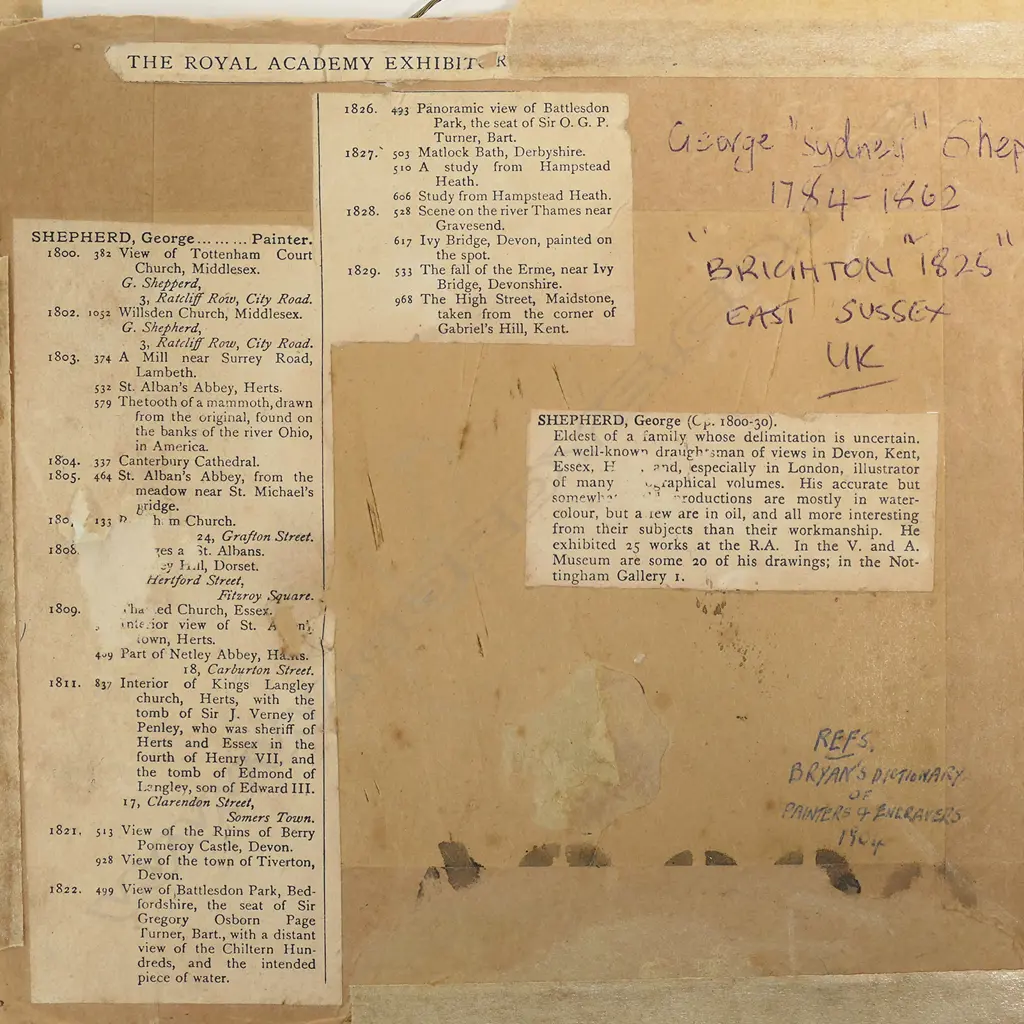 THE ROYAL ACADEMY EXHIBIT R
SHEPHERD, George ......... Painter.
1800. 382 View of Tottenham Court
Church, Middlesex.
G. Shepperd,
3, Ratcliff Row, City Road.
1802. 1052 Willsden Church, Middlesex.
G. Shepherd,
3, Ratcliff Row, City Road.
1803. 374 A Mill near Surrey Road,
Lambeth.
532 St. Alban's Abbey, Herts.
579 The tooth of a mammoth, drawn
from the original, found on
the banks of the river Ohio,
in America.
1804. 337 Canterbury Cathedral.
1805. 464 St. Alban's Abbey, from the
meadow near St. Michael's
Bridge.
180 133 m Church.
24, Grafton Street.
1808. St. Albans.
Dorset.
Hertford Street,
Fitzroy Square.
1809. Church, Essex.
view of St.
town, Herts.
409 Part of Netley Abbey, Hants.
18, Carburton Street.
1811. 837 Interior of Kings Langley
church, Herts, with the
tomb of Sir J. Verney of
Penley, who was sheriff of
Herts and Essex in the
fourth of Henry VII, and
the tomb of Edmond of
Langley, son of Edward III.
17, Clarendon Street,
Somers Town.
1821. 513 View of the Ruins of Berry
Pomeroy Castle, Devon.
928 View of the town of Tiverton,
Devon.
1822. 499 View of Battlesdon Park, Bed-
fordshire, the seat of Sir
Gregory Osborn Page
Turner, Bart., with a distant
view of the Chiltern Hun-
dreds, and the intended
piece of water.
1826. 493 Panoramic view of Battlesdon
Park, the seat of Sir O. G. P.
Turner, Bart.
1827. 503 Matlock Bath, Derbyshire.
510 A study from Hampstead
Heath.
606 Study from Hampstead Heath.
1828. 528 Scene on the river Thames near
Gravesend.
617 Ivy Bridge, Devon, painted on
the spot.
1829. 533 The fall of the Erme, near Ivy
Bridge, Devonshire.
968 The High Street, Maidstone,
taken from the corner of
Gabriel's Hill, Kent.
George "Sydney" Shep
1784-1862
"BRIGHTON 1825"
EAST SUSSEX
UK
SHEPHERD, George (Op. 1800-30).
Eldest of a family whose delimitation is uncertain.
A well-known draughtsman of views in Devon, Kent,
Essex, H and, especially in London, illustrator
of many graphical volumes. His accurate but
somewhat productions are mostly in water-
colour, but a few are in oil, and all more interesting
from their subjects than their workmanship. He
exhibited 25 works at the R.A. In the V. and A.
Museum are some 20 of his drawings; in the Not-
tingham Gallery 1.
REFS.
BRYAN'S DICTIONARY
OF
PAINTERS & ENGRAVERS
1904